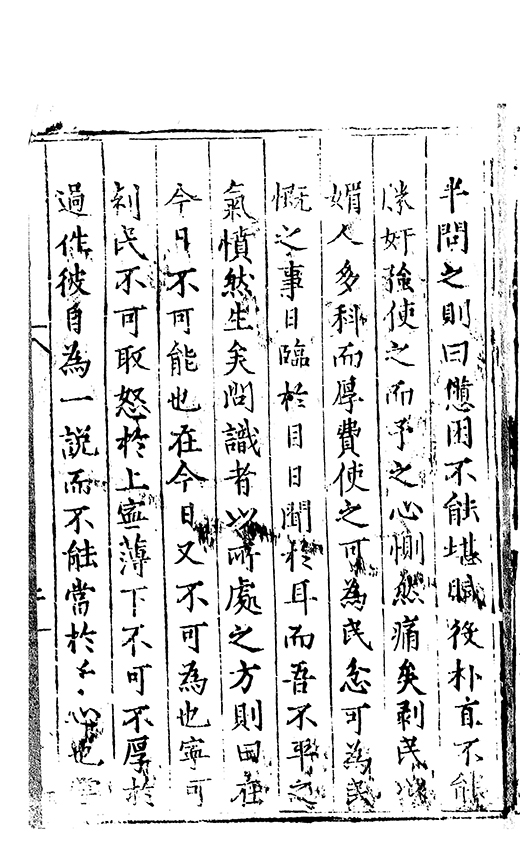 半問之則曰憊困不能堪賦後朴直不能
勝奸強使之而予之心惻然痛矣剥民以
媚人多科而厚費使之可為民念可為民
慨之事日臨於目日聞於耳而吾不平之
氣憤然生矣問識者以所處之方則曰在
今日不可能也在今日又不可為也寧可
剥民不可取怒於上寧薄下不可不厚於
過件彼自為一説而不能當於予心也